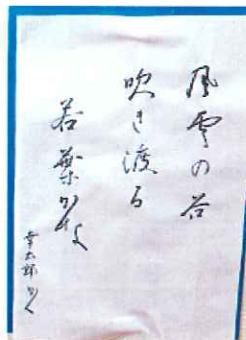 風雲の谷
吹き渡る
若葉かな
幸太郎かく